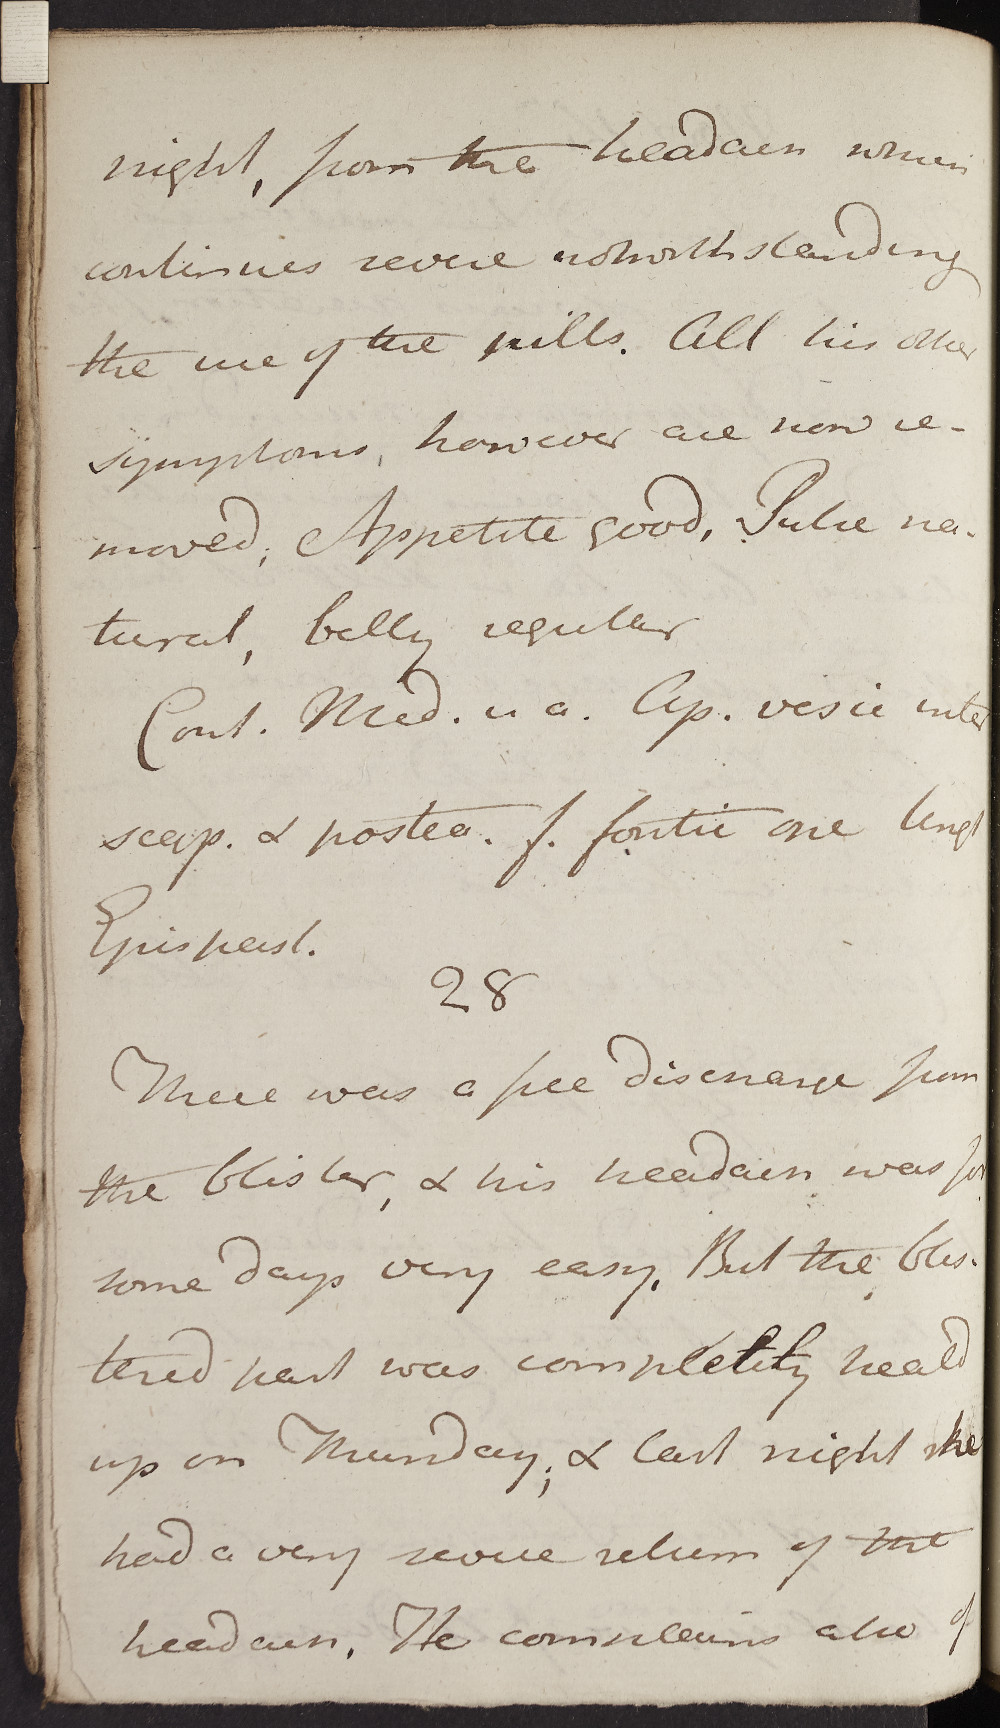 night, from the headach which
continues severe notwithstanding
the use of the pills. All his other
symptoms, however are now re-
moved, Appetite good, Pulse na-
tural, belly regular
Cont. Med. u a. Ap. vesic inter
scap. & postea. f. fontic ope Ungt
Epispast.
28
There was a free discharge from
the blister, & his headach was for
some days very easy. But the blis-
tered part was completely heald
up on Thursday, & last night he
had a very severe return of the
headach. He complains also of